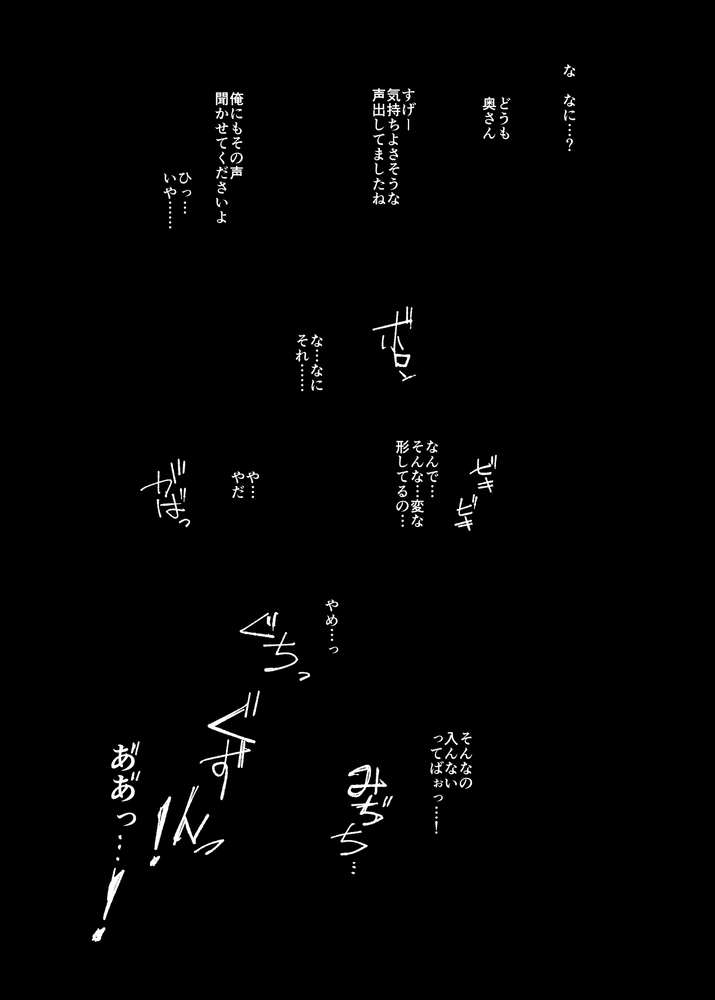 な なに…?
どうも
奥さん
すげー
気持ちよさそうな
声出してましたね
俺にもその声
聞かせてくださいよ
ひっ…
いや……
ボロン
な…なに
それ……
ビキ
ビキ
なんで…
そんな…変な
形してるの…
や…
やだ
がばっ
やめ…っ
ぐちっ
そんなの
入んない
ってばぉっ…!
みぢち…
ぐずんっ!
あ゛あ゛っ…!